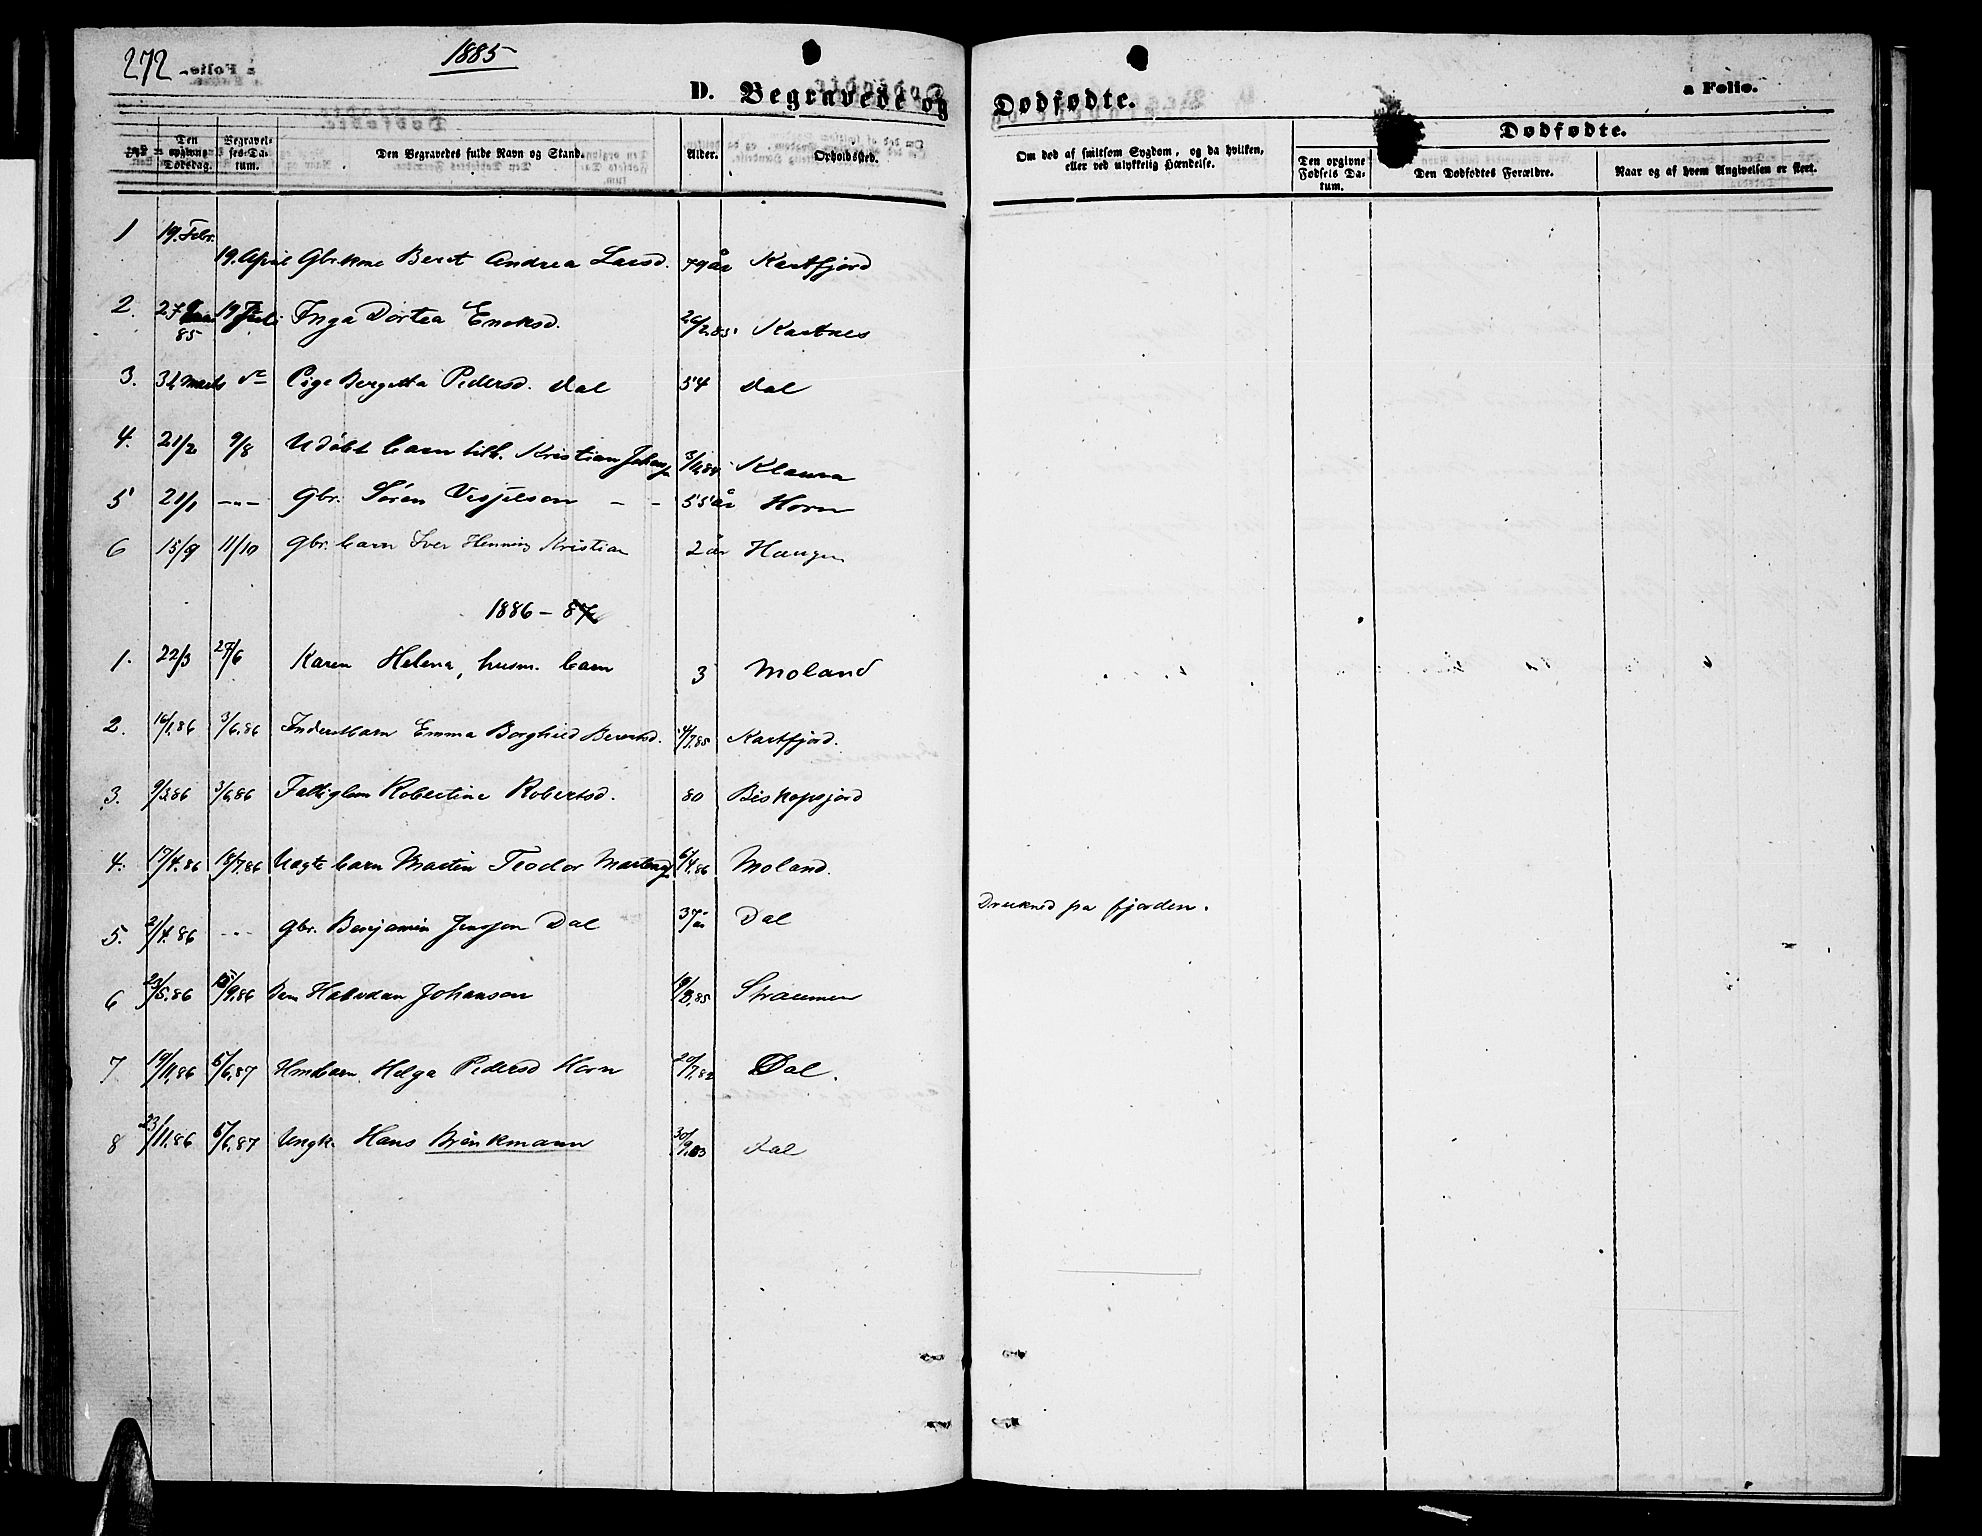 272
1885
a Folie.
D. Begravede og Dødfødte.
a Folie.
Den opgivne Dødsdag.
Begravelses-Datum.
Den Begravedes fulde Navn og Stand.
Alder.
Opholdssted.
Om død af smitsom Sygdom, og da hvilken, eller ved ulykkelig Hændelse.
Dødfødte.
Den opgivne Fødsels Datum.
Den Dødfødtes Forældre.
Naar og af hvem Angivelsen er skeet.
1 19. Febr. 19. April Gbr.kone Beret Andrea Larsd. 79 år Kastfjord
2. 27 85 19 Juli Inga Dortea Enoksd. 26/2.85. Kastnes
3. 31 Marts Pige Bergitta Pedersd. Dal 54 Dal
4. 21/2 9/8 Udøbt barn till. Kristian Klauva
5 21/1 -"- Gbr. Søren - - 55 år Horn
6 15/9 11/10 Gbr. barn Iver Henning Kristian 2 år Haugen
1886 - 87
1. 22/3 27/6 Karen Helena, husm. barn 3 Moland
2. 16/1.86 3/6.86 Inderstbarn Emma Borghild 4/7.85 Kastfjord.
3. 9/3.86 3/6.86 Fattiglem Robertine Robertsd. 80 Biskopsjord
4. 17/4.86 18/7.86 Uægte barn Martin Teodor 6/4.86 Moland.
5. 2/4.86 - - - gbr. Benjamin Dal 37 år Dal Drukned pa fjorden.
6 /5.86 /9.86 Halvdan Johanson Straumen
7 19/11.86 5/6.87 Helga Pedersd Horn 20/7.82 Dal.
8 23/11.86 5/6.87 Ungk. Hans Brinkmann 30/9.63 Dal